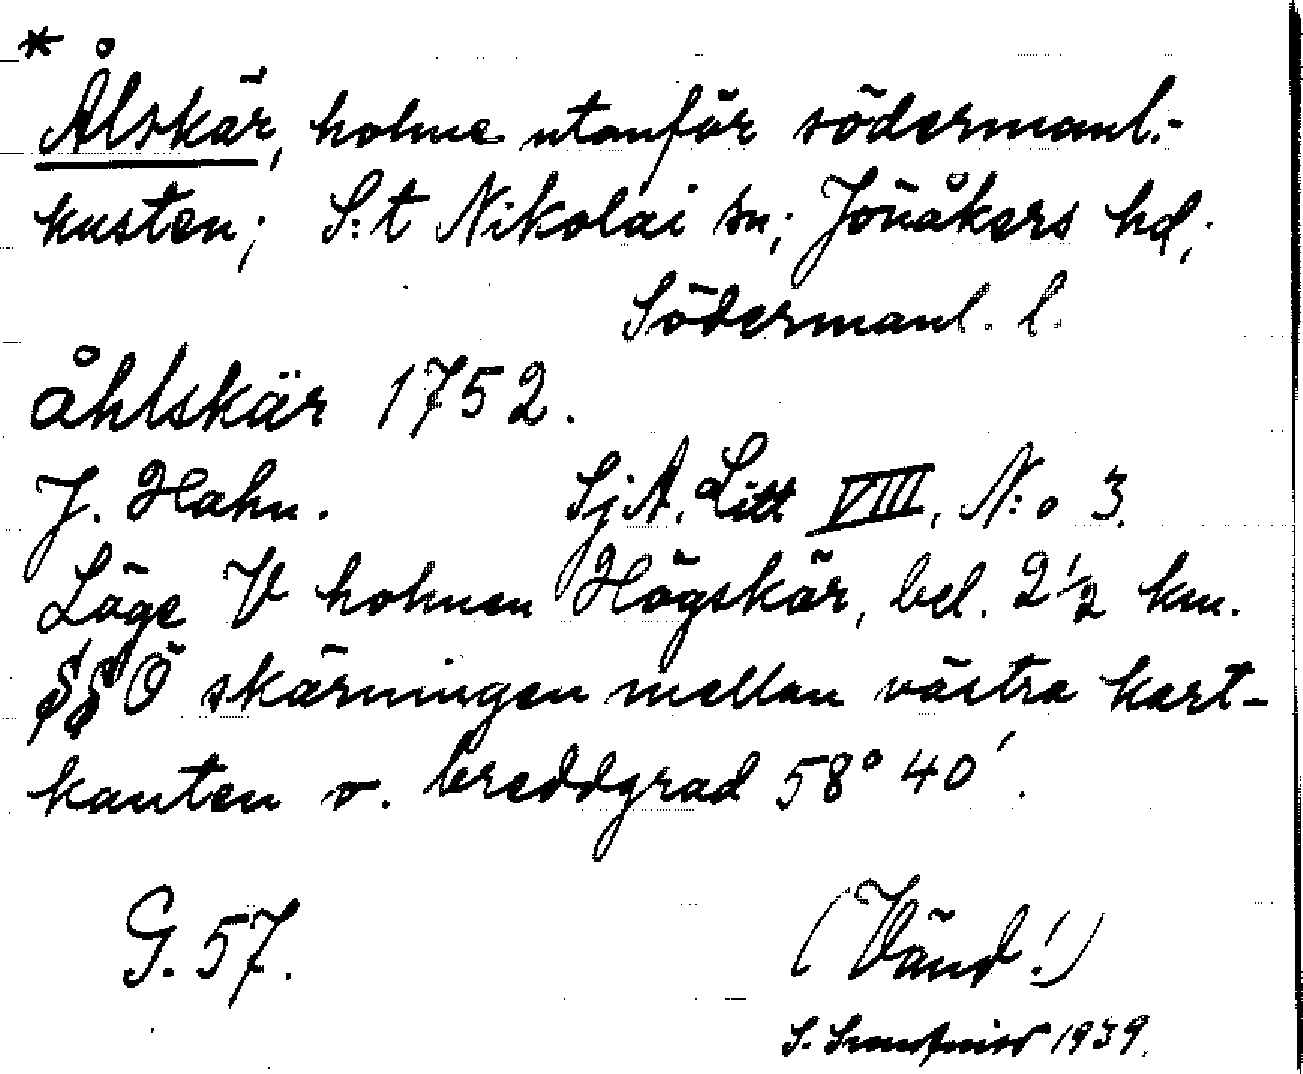 * Ålskär, holme utanför södermanl.-
kusten; S:t Nikolai sn; Jönåkers hd;
Södermanl. l.
åhlskär 1752.
J. Hahn. SjA. Litt VIII, N:o 3.
Läge V holmen Högskär, bel. 2 1/2 km.
Ö skärningen mellan västra kart-
kanten o. breddgrad 58° 40'.
G. 57.
(Vänd!)
S. 1939.